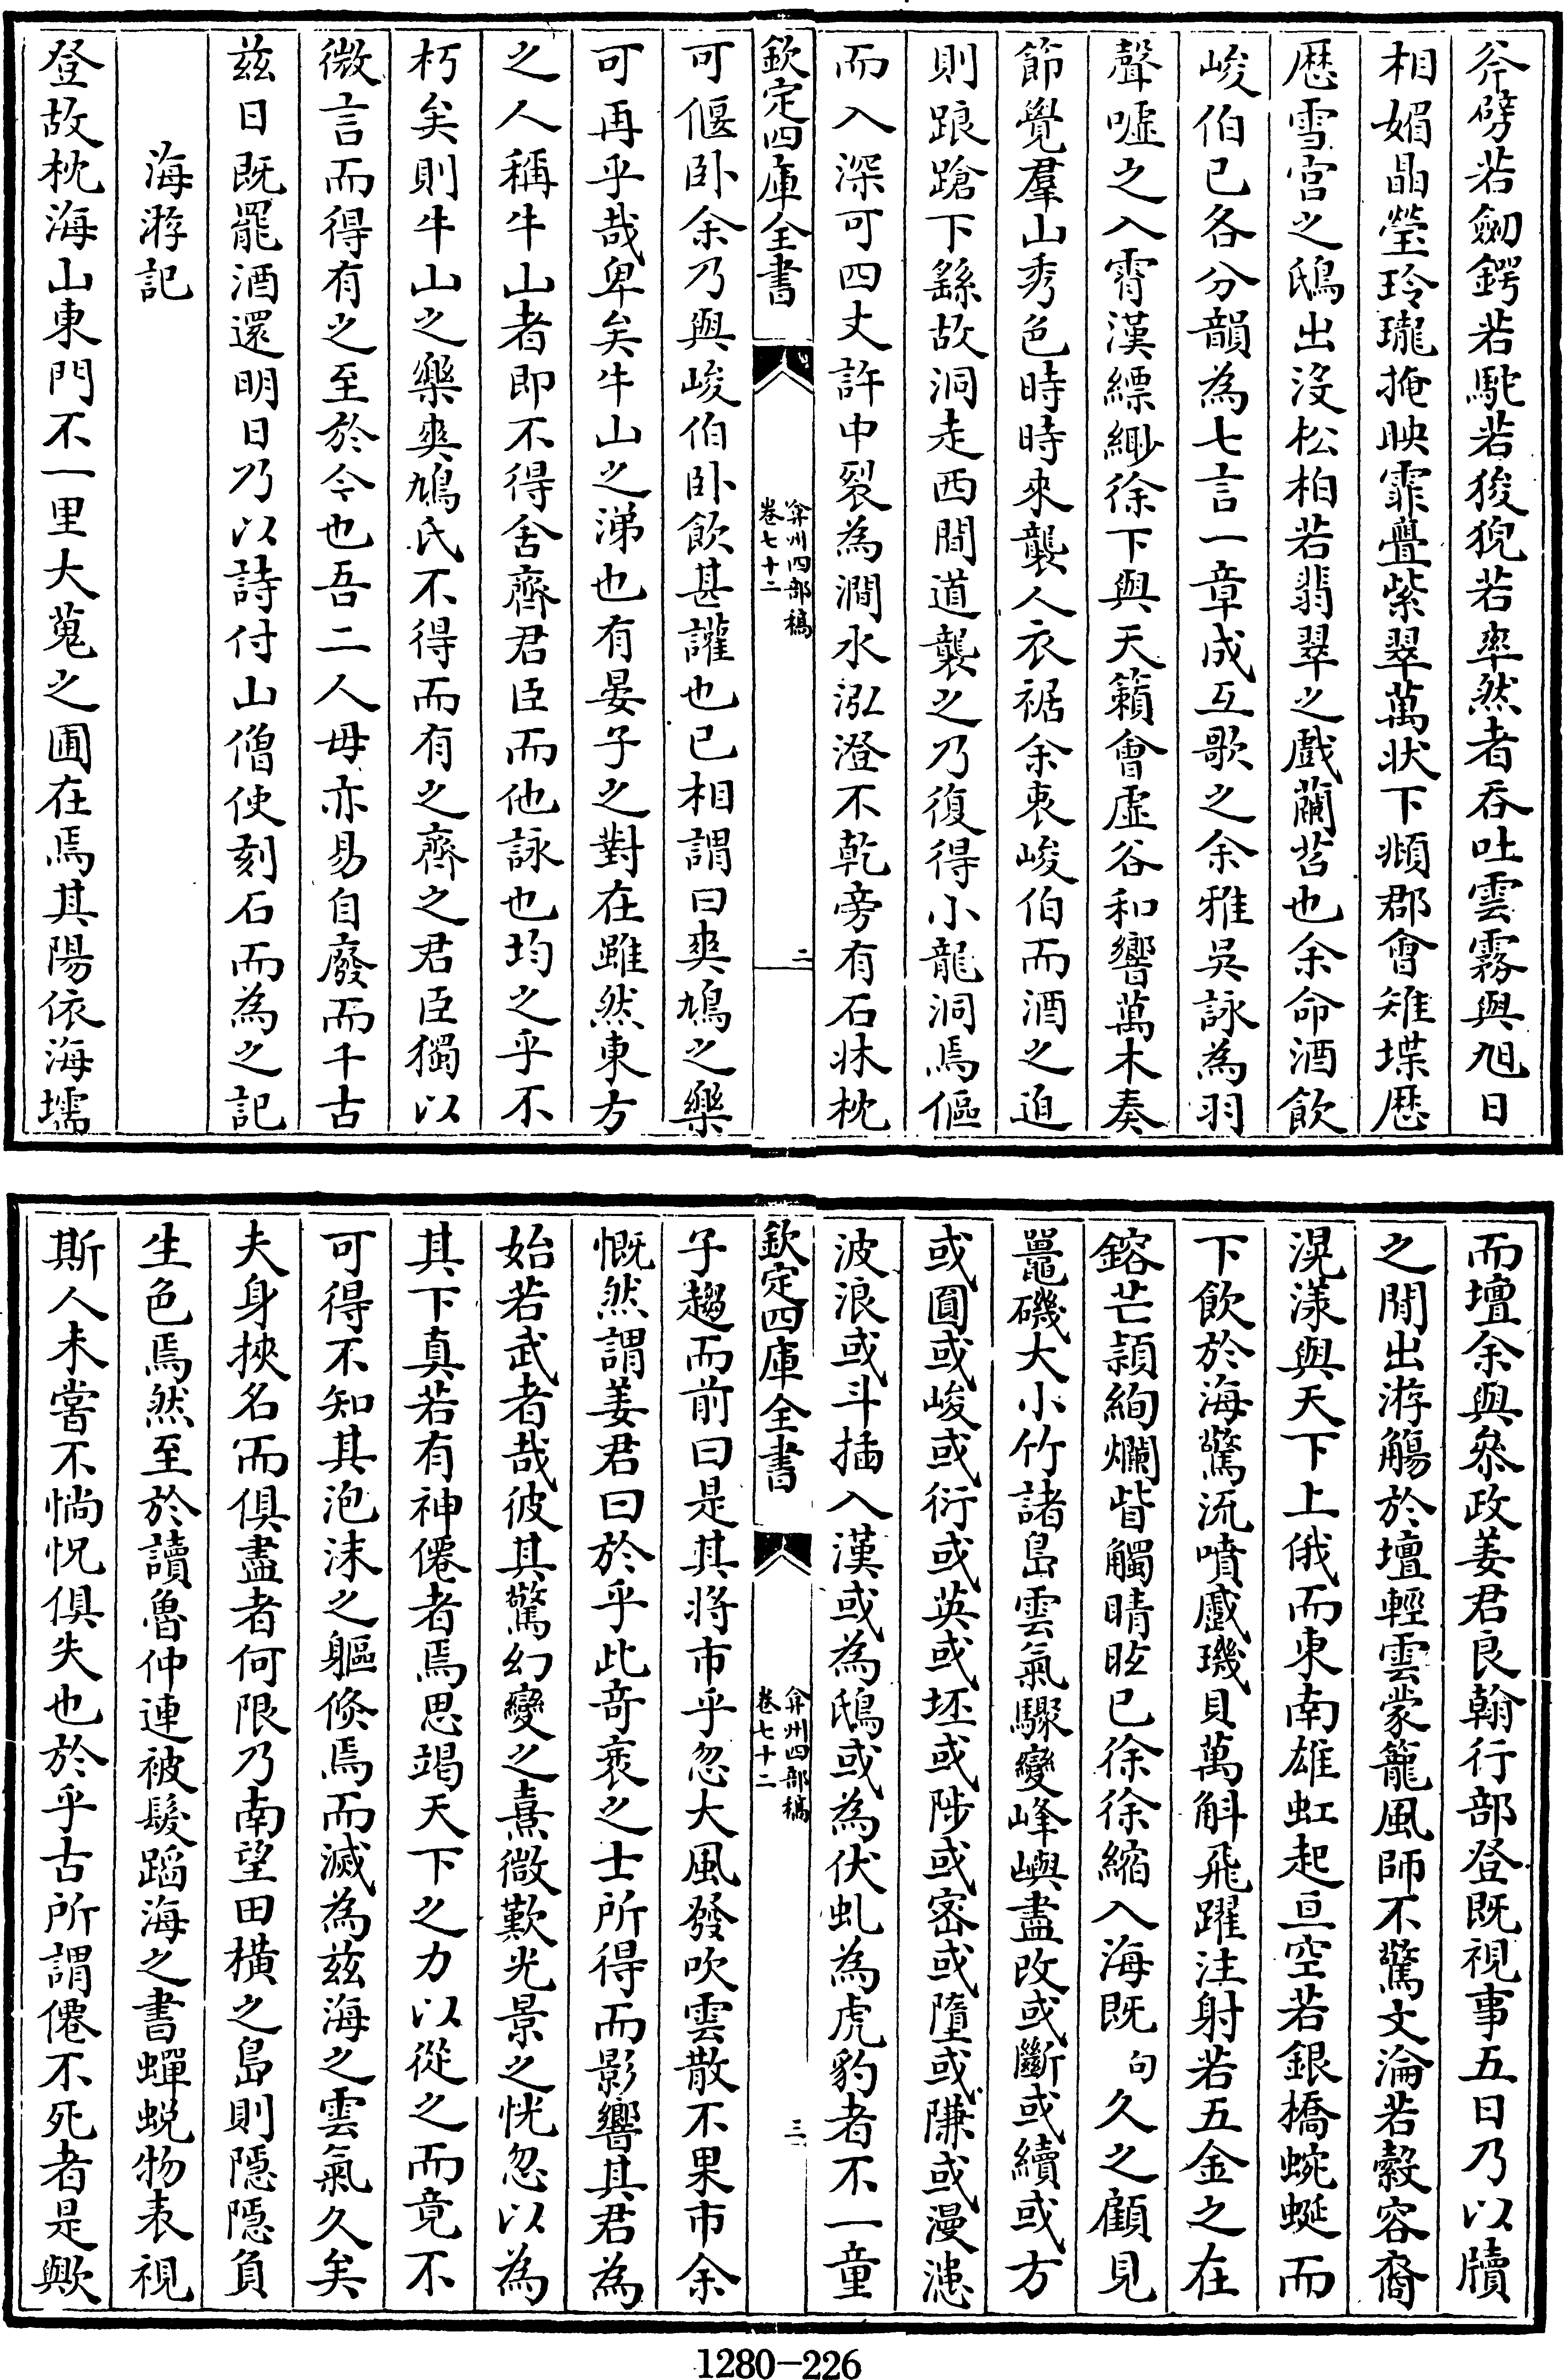 斧劈若劒鍔若駝若狻猊若率然者吞吐雲霧與旭日
相媚晶瑩玲瓏掩映霏亹紫翠萬狀下頫郡會雉堞厯
厯雪宫之鴟出没松柏若翡翠之戲蘭苕也余命酒飲
峻伯已各分韻為七言一章成互歌之余雅吳詠為羽
聲嘘之入霄漢縹緲徐下與天籟會虚谷和響萬木奏
節覺羣山秀色時時來襲人衣裾余衷峻伯而酒之迫
則踉蹌下繇故洞走西間道襲之乃復得小龍洞焉傴
而入深可四丈許中裂為澗水泓澄不乾旁有石牀枕
欽定四庫全書
弇州四部稿
卷七十二
二
可偃卧余乃與峻伯卧飲甚讙也已相謂曰爽鳩之樂
可再乎哉卑矣牛山之涕也有晏子之對在雖然東方
之人稱牛山者即不得舍齊君臣而他詠也均之乎不
朽矣則牛山之樂爽鳩氏不得而有之齊之君臣獨以
微言而得有之至於今也吾二人毋亦易自廢而千古
兹日既罷酒還明日乃以詩付山僧使刻石而為之記
海游記
登故枕海山東門不一里大蒐之圃在焉其陽依海壖
而壇余與叅政姜君良翰行部登既視事五日乃以牘
之閒出游觴於壇輕雲蒙籠風師不驚文淪若縠容裔
滉漾與天下上俄而東南雄虹起亘空若銀橋蜿蜒而
下飲於海驚流噴㦚璣貝萬斛飛躍注射若五金之在
鎔芒頴絢爛眥觸睛眩已徐徐縮入海既句久之顧見
鼉磯大小竹諸島雲氣驟變峰嶼盡改或斷或續或方
或圓或峻或衍或英或坯或陟或密或墮或隒或漫漶
波浪或斗插入漢或為鴟或為伏虬為虎豹者不一童
欽定四庫全書
弇州四部稿
卷七十二
三
子趨而前曰是其將市乎忽大風發吹雲散不果市余
慨然謂姜君曰於乎此竒衺之士所得而影響其君為
始若武者哉彼其驚幻變之熹微歎光景之恍忽以為
其下真若有神僊者焉思竭天下之力以從之而竟不
可得不知其泡沫之軀倐焉而滅為兹海之雲氣久矣
夫身挾名而俱盡者何限乃南望田橫之島則隱隱負
生色焉然至於讀魯仲連被髮蹈海之書蟬蜕物表視
斯人未嘗不惝怳俱失也於乎古所謂僊不死者是歟
1280-226